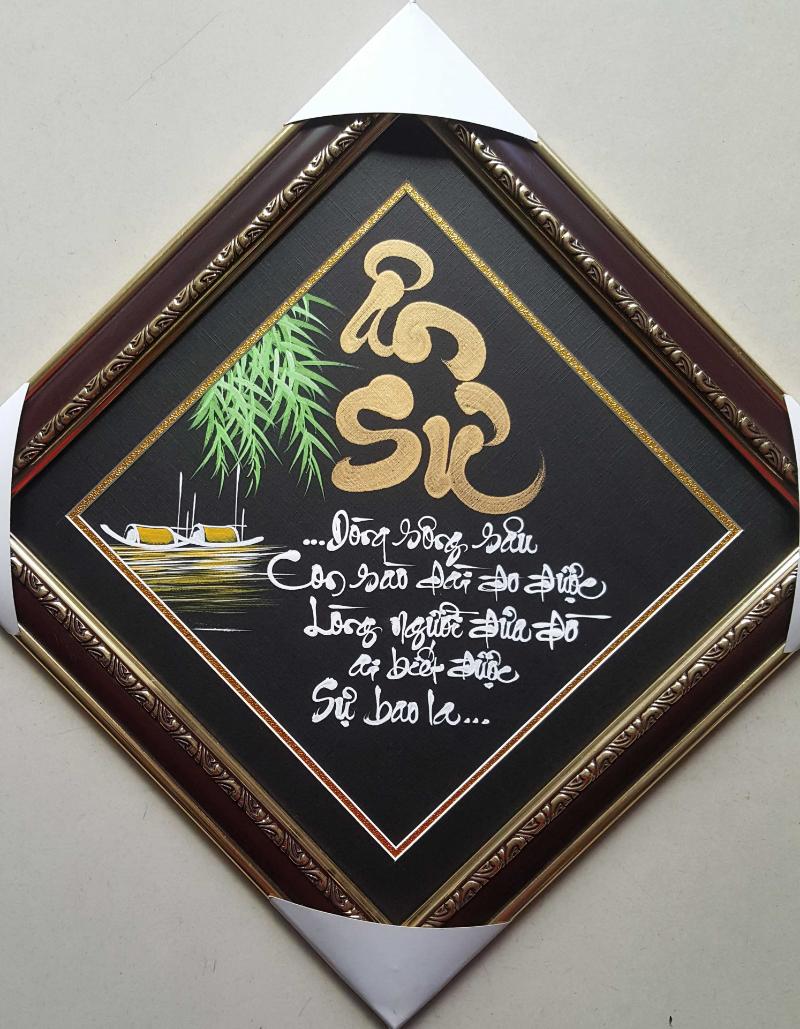 ân
Sư
...Dòng sông sâu
Con sào dài đo được
Lòng người đưa đò
ai biết được
Sự bao la...